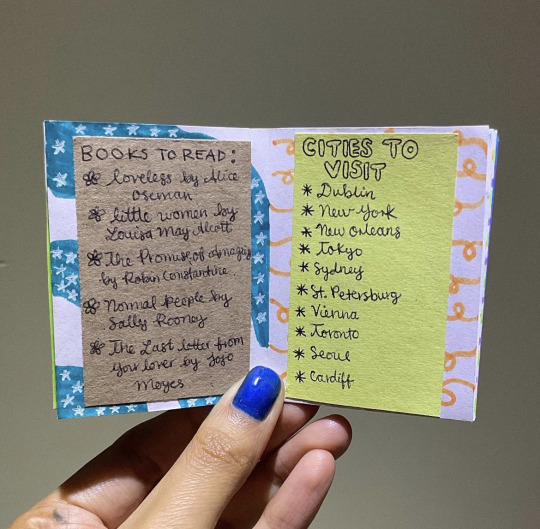 BOOKS TO READ:
loveless by Alice
Oseman
little women by
Louisa May Alcott
The Promise of amazing
by Robin Constantine
Normal People by
Sally Rooney
The Last letter from
your lover by Jojo
Moyes
CITIES TO
VISIT
* Dublin
* New York
* New Orleans
* Tokyo
* Sydney
* St. Petersburg
* Vienna
* Toronto
* Seoul
* Cardiff